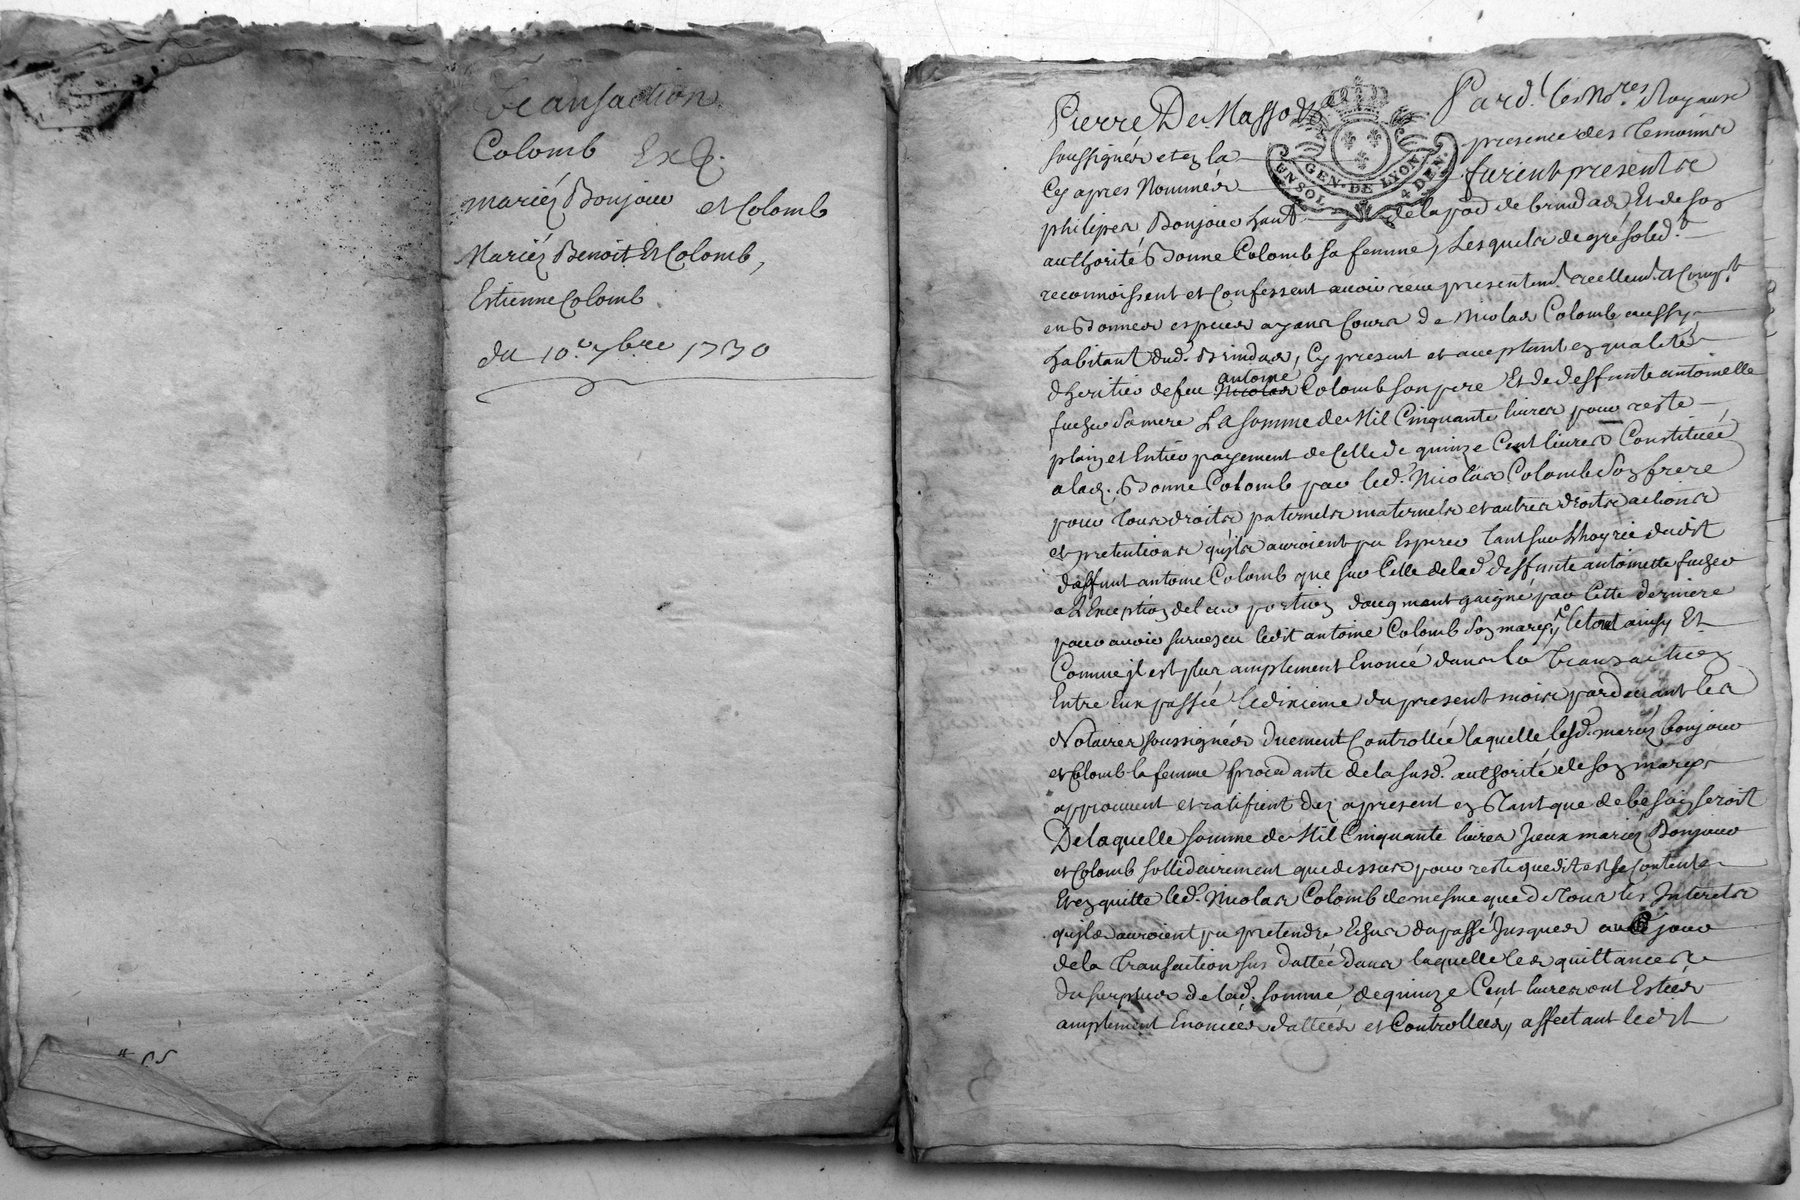 Transaction
Colomb Exp.
mariés Bonjour et Colomb
Mariés Benoit Et Colomb,
Estienne Colomb
du 10.e 7bre 1730
Pierre De Masso
Pard.t les No.res Royaux
GEN. DE LYON
UN SOL 4 DEN.
soussignés et en la presence des temoins
Cy apres Nommés furent presents
philipes Bonjour hant de la par de brindas Et de son
authorité Bonne Colomb sa femme, Lesquels de gré solid.t
reconnoissent et Confessent avoir receu presentem.t reellem.t et Comp.t
en Bonnes especes ayans Cours de Nicolas Colomb aussy
habitant dud. Brindas, Cy present et acceptant en qualité
d'heritier de feu Nicolas antoine Colomb son pere Et de deffunte antoinette
sa mere La somme de Mil Cinquante livres pour reste
plain et Entier payement de Celle de quinze Cent livres Constituée
a lad. Bonne Colomb par led. Nicolas Colomb Son frere
pour tous droits paternels maternels et autres droits actions
et pretentions qu'ils auroient pu Esperer tant sur Lhoyrie dudit
deffunt antoine Colomb que sur Celle de lad. deffunte antoinette
a L'Exception de leur portion d'augment gaigné par Cette derniere
pour avoir survescu ledit antoine Colomb Son mary, le tout ainsy Et
Comme il est plus amplement Enoncé dans la Transaction
Entre Eux passée le dixieme du present mois pardevant les
Notaires soussignés duement Controllée laquelle lesd. mariés bonjour
et Colomb la femme procedante de la susd. authorité de son mary
approuvent et ratifient des apresent en Tant que de besoin seroit
De laquelle somme de Mil Cinquante livres Jceux mariés Bonjour
et Colomb sollidairement que dessus pour reste que dit est se contente
Et en quitte led. Nicolas Colomb de mesme que de tous les Interets
qu'ils auroient pu pretendre Echus du passé Jusques au jour
de la Transaction sus dattée dans laquelle les quittances
du surplus de lad. somme de quinze Cent livres ont Estées
amplement Enoncées dattées et Controllées, affectant ledit